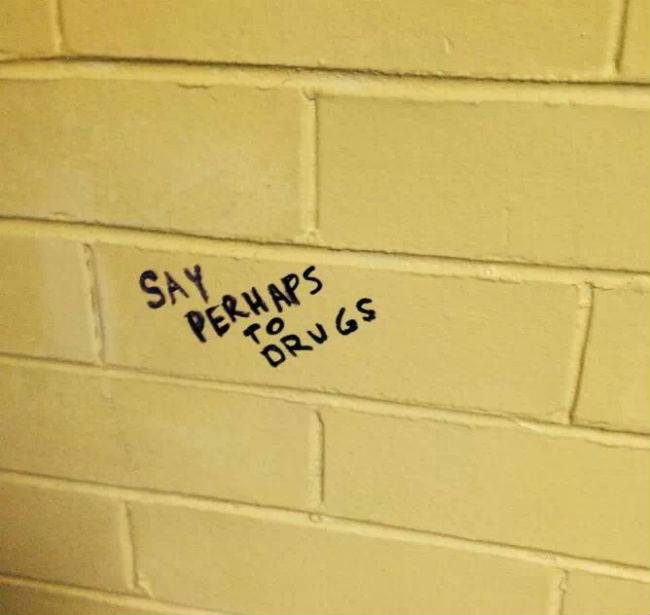 SAY
PERHAPS
TO
DRUGS